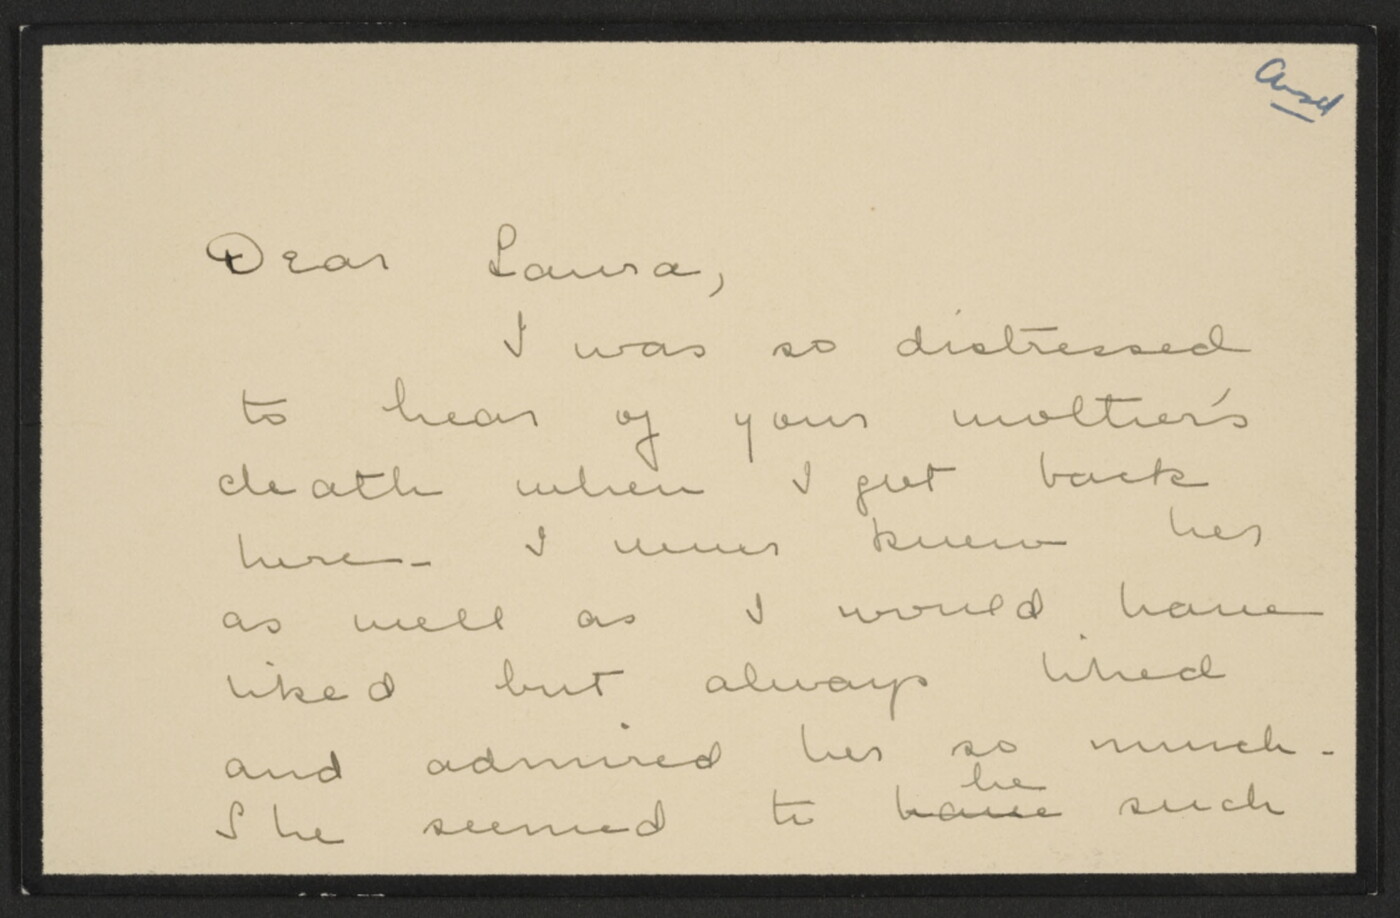 Dear Laura,
I was so distressed
to hear of your mother's
death when I got back
here - I never knew her
as well as I would have
liked but always liked
and admired her so much -
he
She seemed to have such